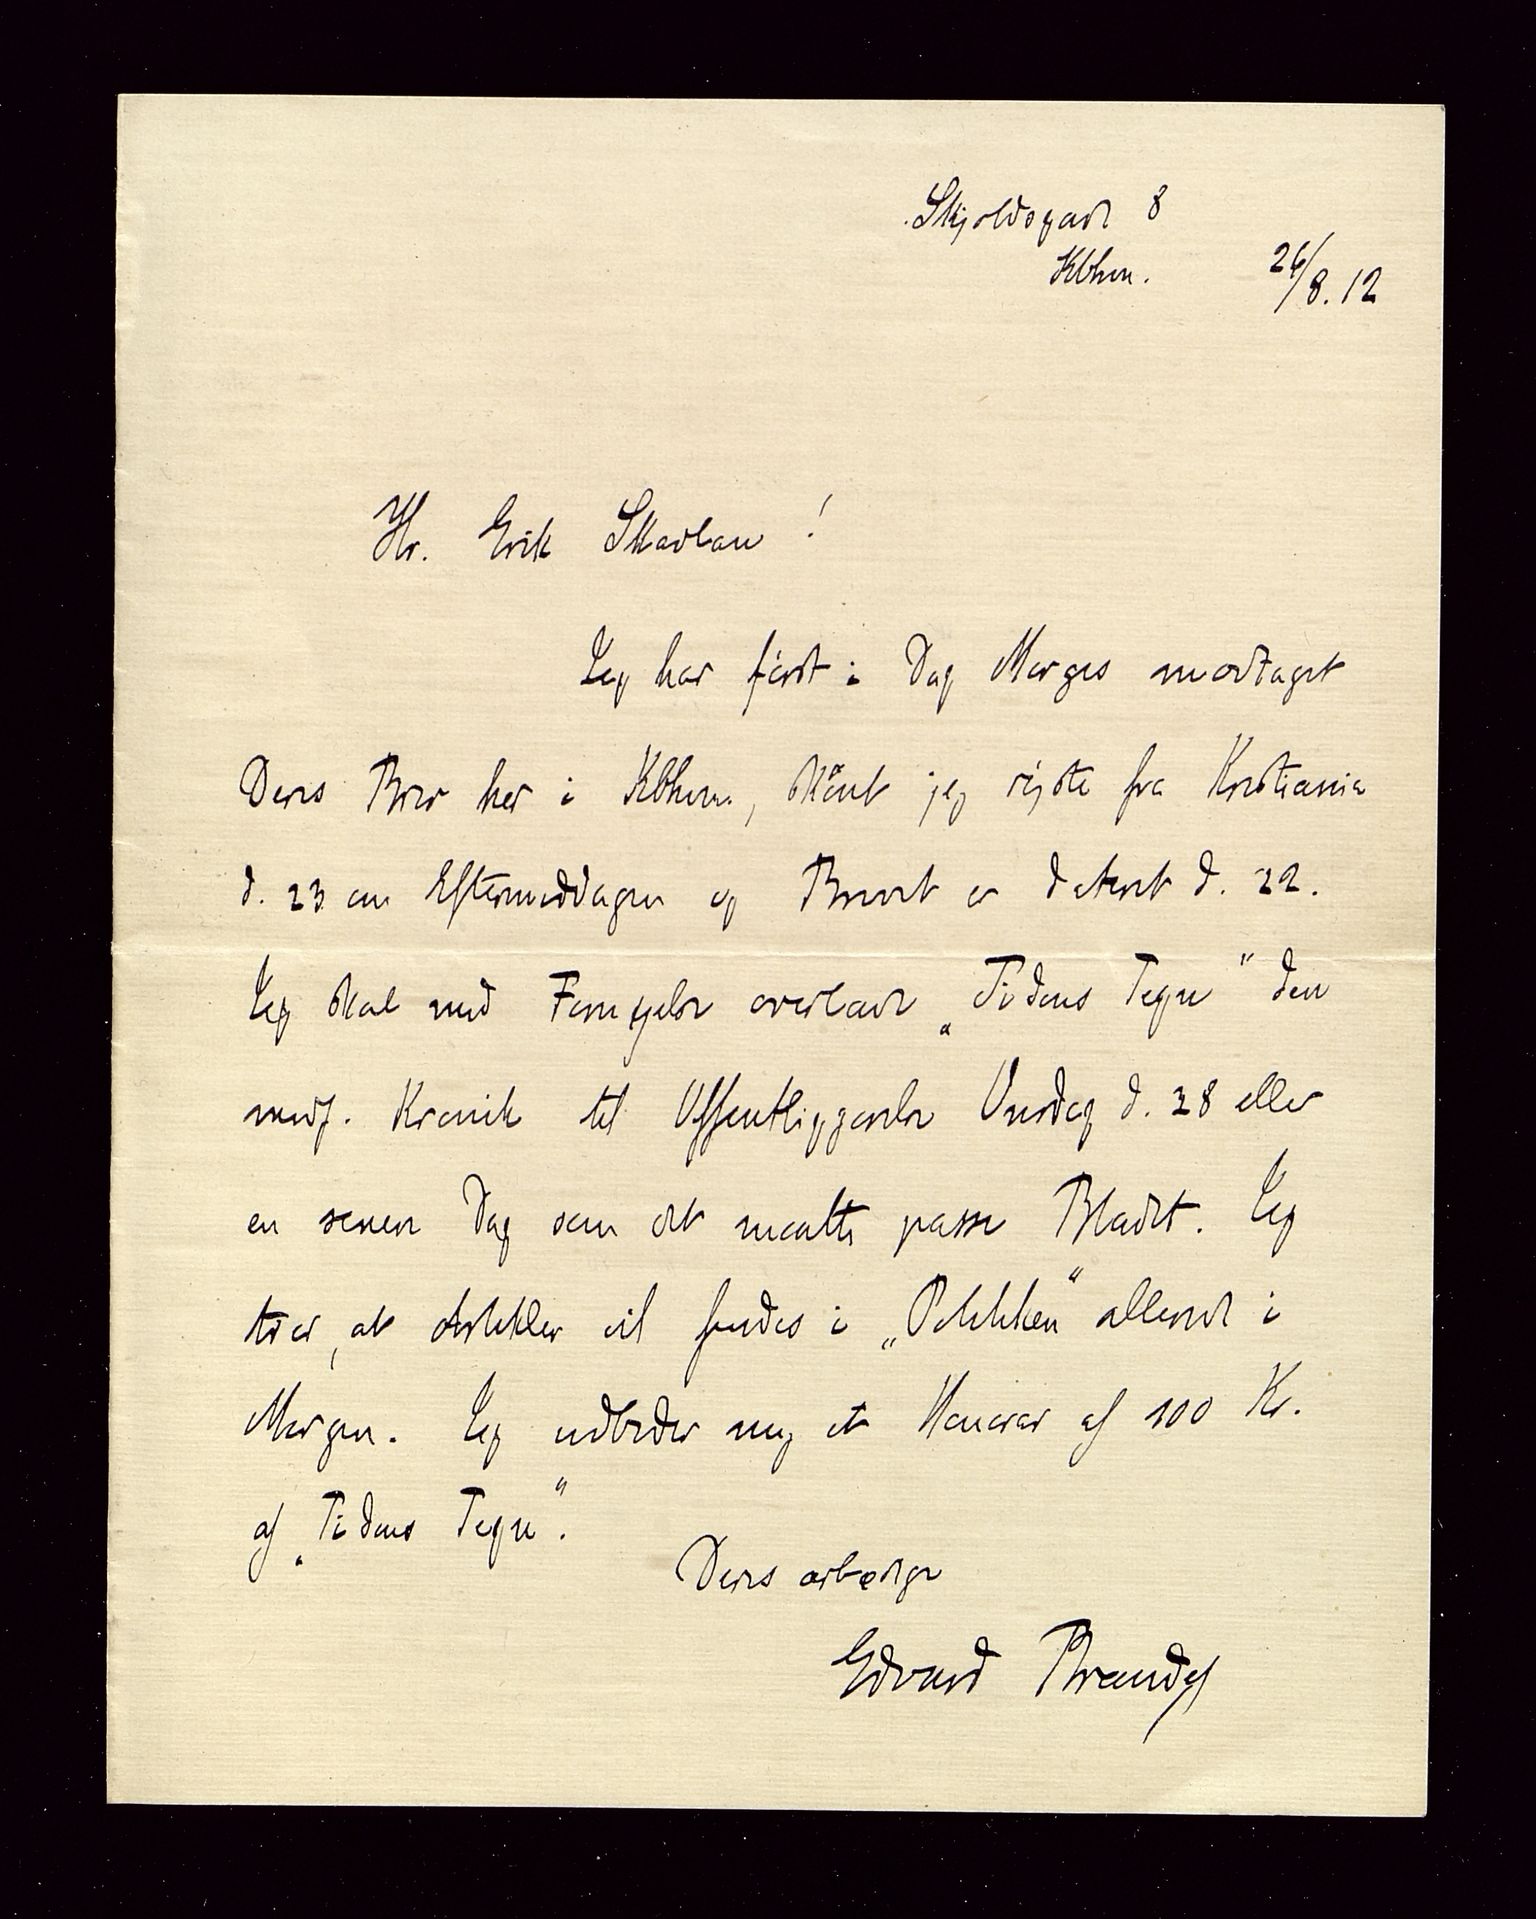 Skjoldsgade 8
Kbhvn. 26/8. 12
Hr. Erik Skavlan!
Jeg har først i Dag Morges modtaget
Deres Brev her i Kbhvn., skönt jeg rejste fra Kristiania
d. 23 om Eftermiddagen og Brevet er dateret d. 22.
Jeg skal med Fornøjelse overlade „Tidens Tegn" den
medf. Kronik til Offentliggørelse Onsdag d. 28 eller
en senere Dag som det maatte passe Bladet. Jeg
tror, at Artiklen vil findes i „Politiken" allerede i
Morgen. Jeg udbeder mig et Honorar af 100 Kr.
af „Tidens Tegn".
Deres ærbødige
Edvard Brandes